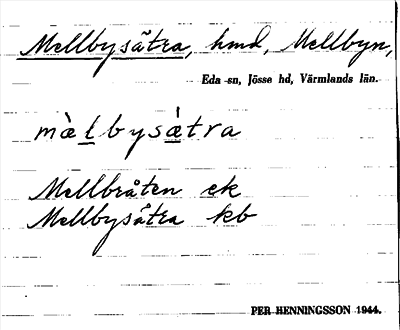 Mellbysätra, hmd, Mellbyn,
Eda sn, Jösse hd, Värmlands län.
mὰlbysάtra
Mellbråten ek
Mellbysätra kb
PER HENNINGSSON 1944.